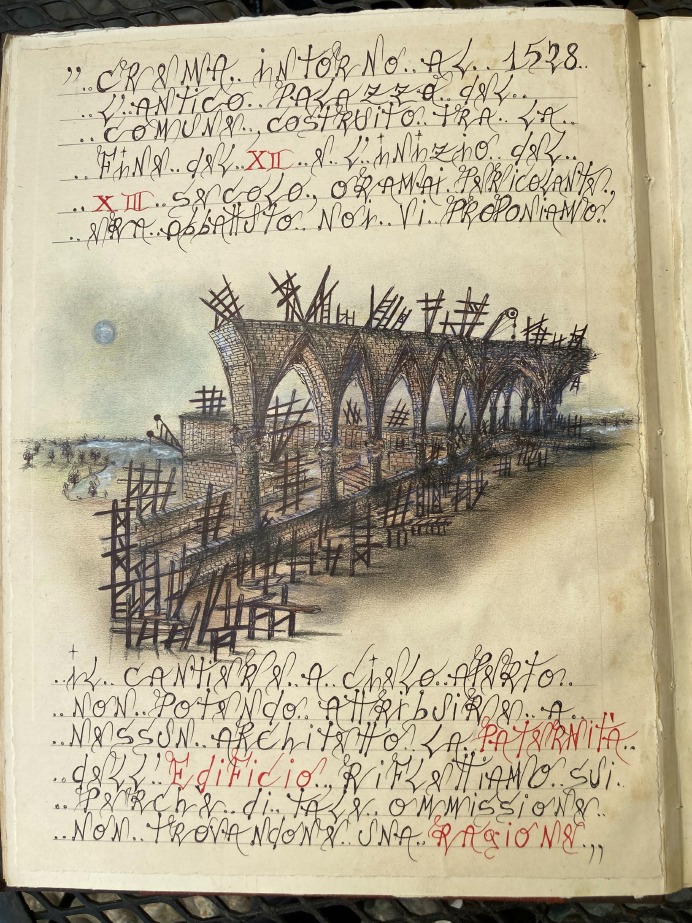 " .. CREMA .. iNTORNO .. AL .. 1528 ..
.. L'ANTICO .. PALAZZO dEL ..
.. COMUNE, COSTRUITO TRA .. LA ..
.. FiNE dEL XII .. E L'iNiZiO .. dEL ..
.. XIII SECOLO, ORAMAi PERiCOLANTE,
.. ERA AbbATTUTO NOi .. Vi .. PROPONiAMO:
.. iL .. CANTiERE .. A CiELO APERTO ..
.. NON POTENDO ATTRibUiRE .. A ..
NESSUN .. ARChiTETTO LA PATERNiTÀ ..
.. dELL'EdiFiCiO, RiFLETTiAMO SUi ..
.. PERCHE .. di .. TALE .. OMMiSSiONE ..
.. NON TROVANdONE UNA RAGiONE ,,